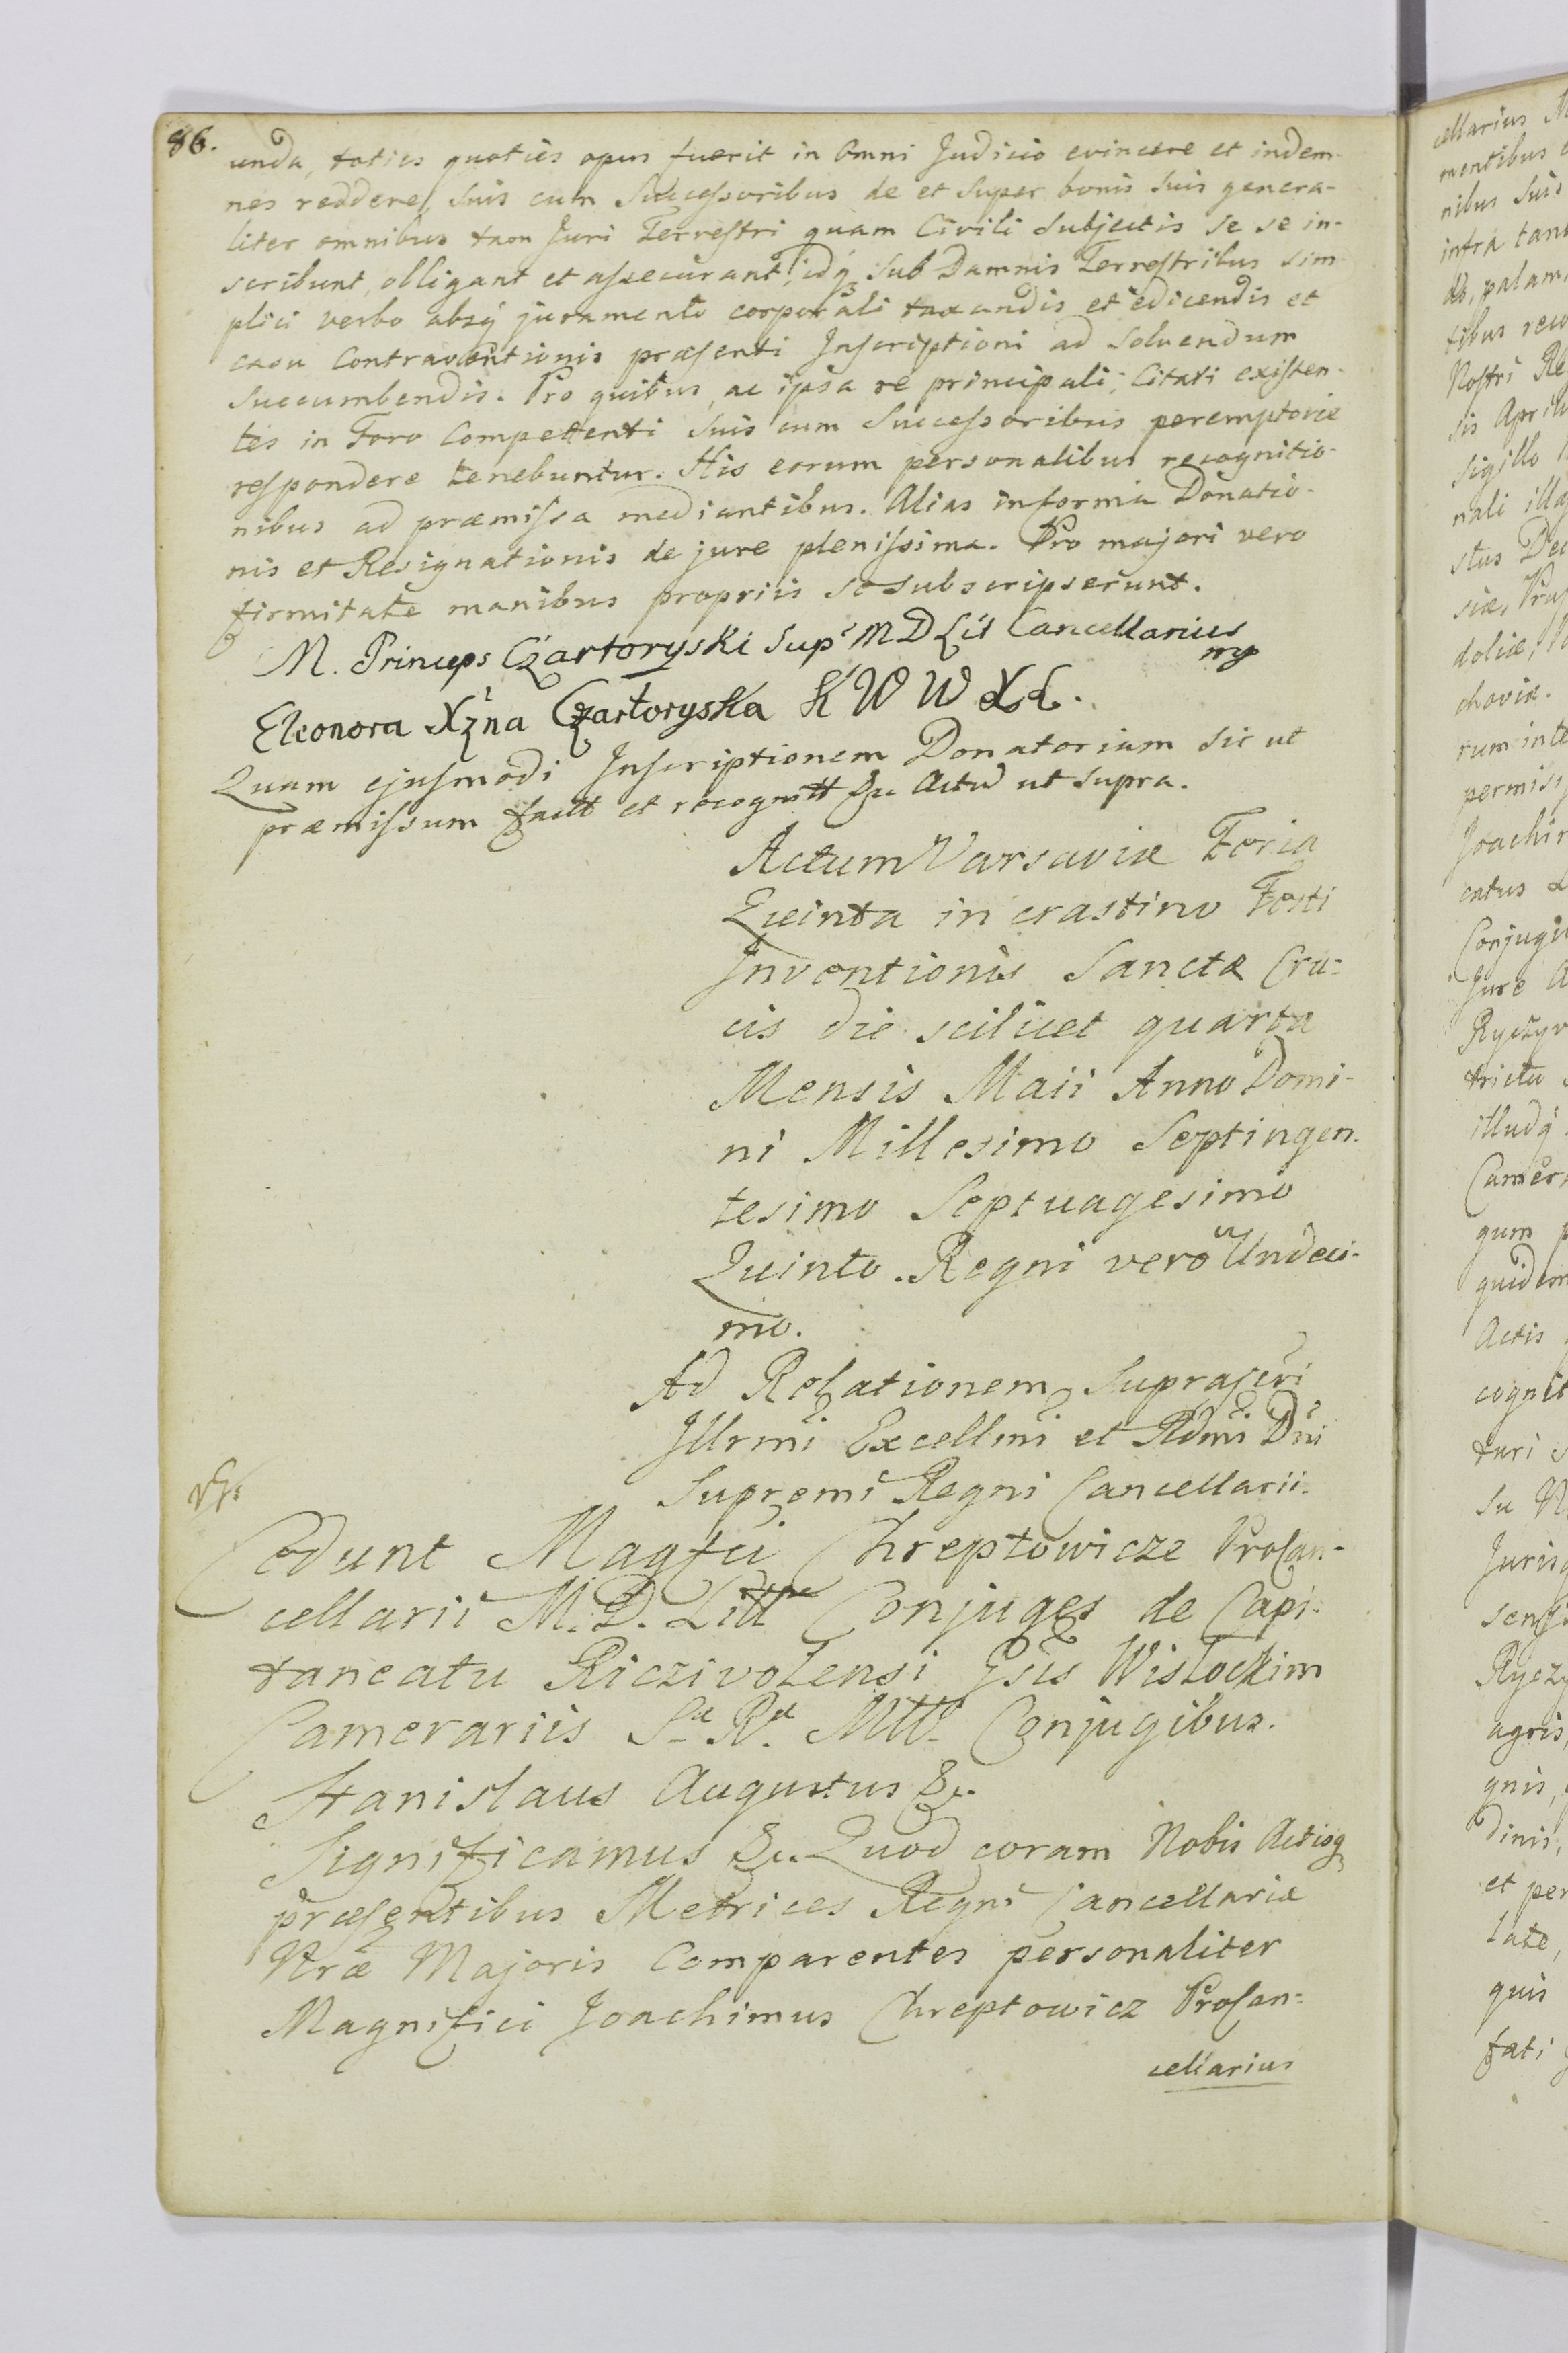 86.
unda, toties quoties opus fuerit in Omni Judicio evincere et indem-
nes reddere, suis cum Successoribus de et super bonis suis genera-
liter omnibus tam Juri Terrestri quam Civili subjectis se se in-
scribunt, obligant et assecurant, idq sub Damnis Terrestribus sim-
plici verbo absq juramento corporali taxandis et edicendis et
casu Contraventionis præsenti Inscriptioni ad solvendum
succumbendis. Pro quibus, ac ipsa re principali, Citati existen-
tes in Foro Competenti suis cum Successoribus peremptorie
respondere tenebuntur. His eorum personalibus recognitio-
nibus ad præmissa mediantibus. Alias in forma Donatio-
nis et Resignationis de jure plenissima. Pro majori vero
firmitate manibus propriis se subscripserunt.
M. Princeps Czartoryski Sup: M D Lit Cancellarius
mp
Eleonora Xżna Czartoryska K W W X L.
Quam ejusmodi Inscriptionem Donatoriam sic ut
præmissum factt et recognitt &c. Actu ut supra.
Actum Varsaviæ Feria
Quinta in crastino Festi
Inventionis Sanctæ Cru-
cis die scilicet quarta
Mensis Maii Anno Domi-
ni Millesimo Septingen-
tesimo Septuagesimo
Quinto. Regni vero Undeci-
mo.
Ad Relationem Suprascri
Illrmi Excellmi et Rdmi Dni
Supremi Regni Cancellarii.
Cedunt Magfci Chreptowicze Procan-
cellarii M. D. Litt Conjuges de Capi-
taneatu Riczivolensi Gsis Wisłockim
Camerariis S. R. Mtt. Conjugibus.
Stanislaus Augustus &c.
Significamus &c. Quod coram Nobis Actisq
præsentibus Metrices Regni Cancellariæ
Nræ Majoris Comparentes personaliter
Magnifici Joachimus Chreptowicz Procan-
cellarius
cellarius
mentibus
nibus suis
intra
palam
tibus
Nostri
sis
Sigillo
nali
stus
siæ,
doliæ,
choviæ.
rum
permis
Joachim
Conjugi
Jure
trictu
illudq
Camer
gum
quidem
Actis
cognit
turi
su
Juris
agris,
gnis,
dinis,
et per
late,
quis
fati